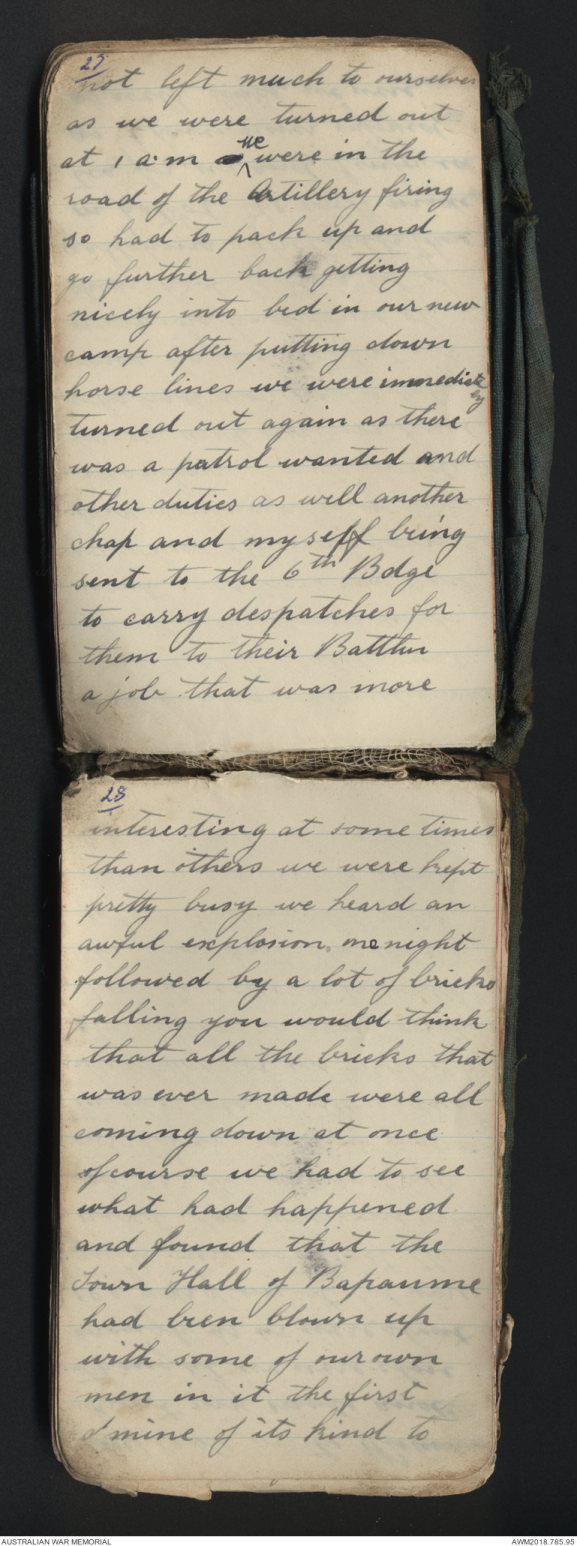 27
not left much to ourselves
as we were turned out
at 1 a.m we were in the
road of the Artillery firing
so had to pack up and
go further back getting
nicely into bed in our new
camp after putting down
horse lines we were immediately
turned out again as there
was a patrol wanted and
other duties as well another
chap and myself being
sent to the 6th Bdge
to carry despatches for
them to their Battln
a job that was more
28
interesting at some times
than others we were kept
pretty busy we heard an
awful explosion one night
followed by a lot of bricks
falling you would think
that all the bricks that
was ever made were all
coming down at once
ofcourse we had to see
what had happened
and found that the
Town Hall of Bapaume
had been blown up
with some of our own
men in it the first
mine of its kind to
AUSTRALIAN WAR MEMORIAL
AWM2018.785.95